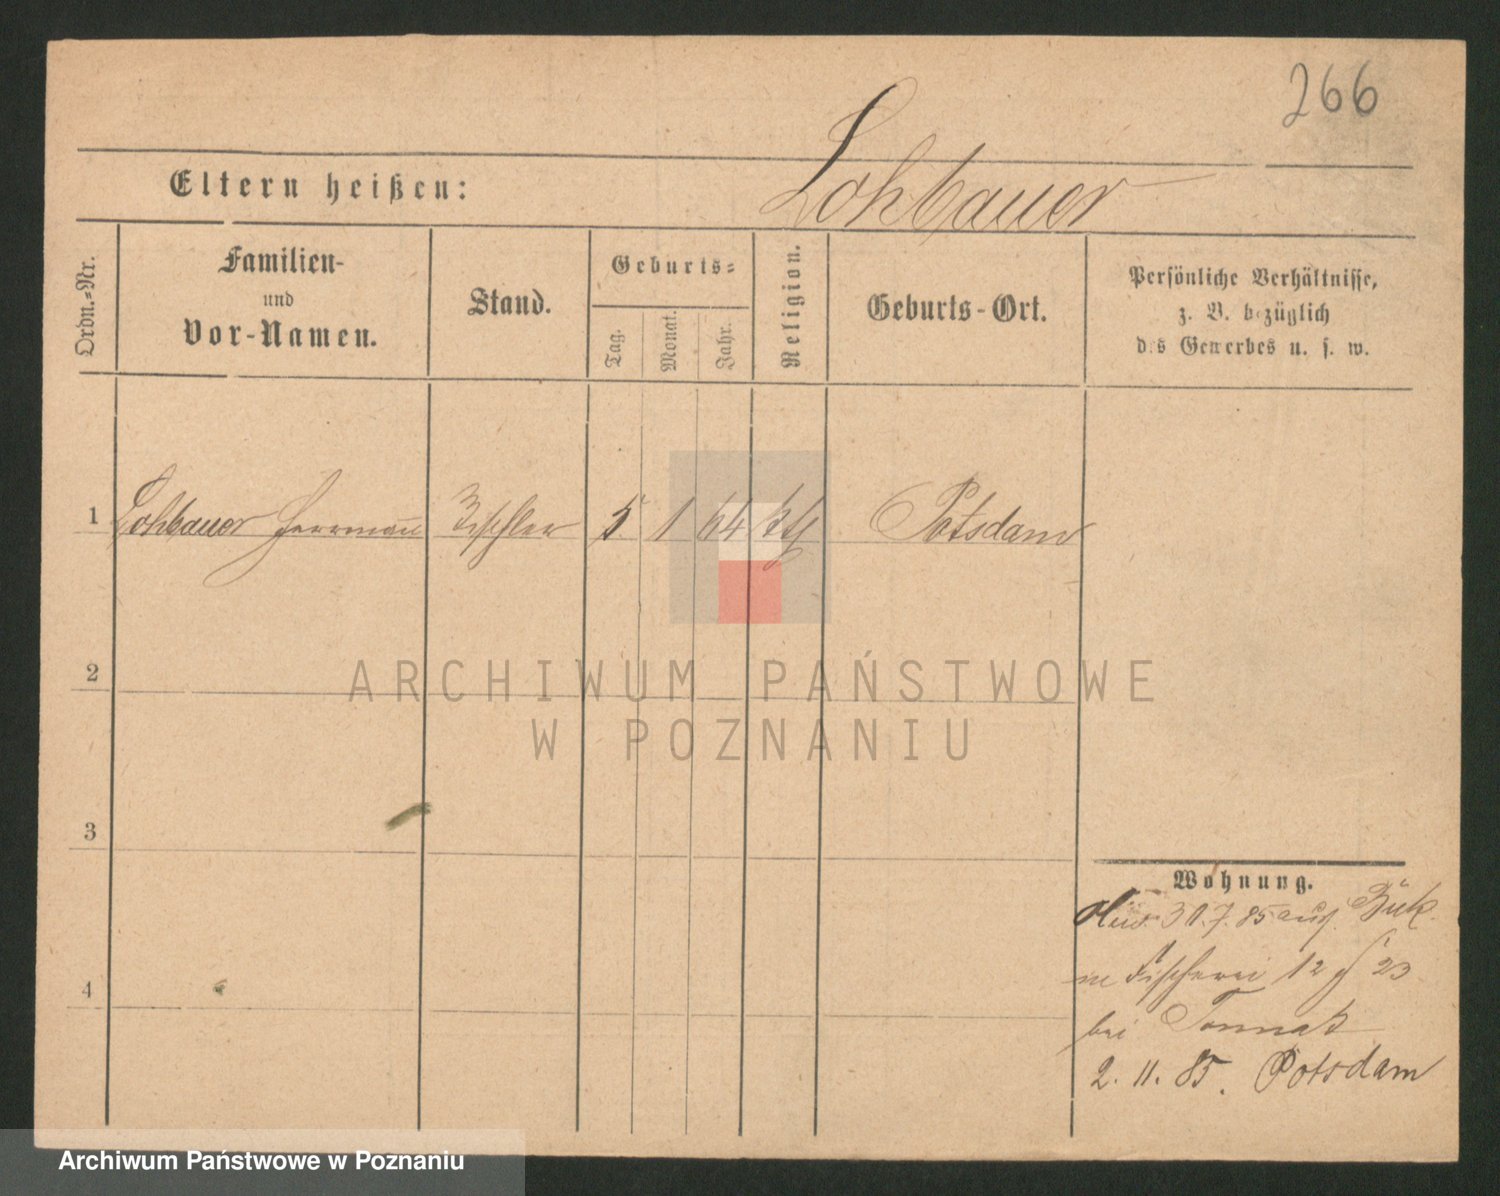 266
Lohbauer
Eltern heißen:
Ordn.-Nr.
Familien-
und
Vor-Namen.
Stand.
Geburts-
Tag.
Monat.
Jahr.
Religion.
Geburts-Ort.
Persönliche Verhältnisse,
z. B. bezüglich
des Gewerbes u. s. w.
1 Lohbauer Herrmann Tischler 5. 1 64 kth Potsdam
2
3
4
Wohnung.
31.7.85 aus
Fischerei 12 23
bei
2. 11. 85. Potsdam
ARCHIWUM PAŃSTWOWE
W POZNANIU
Archiwum Państwowe w Poznaniu